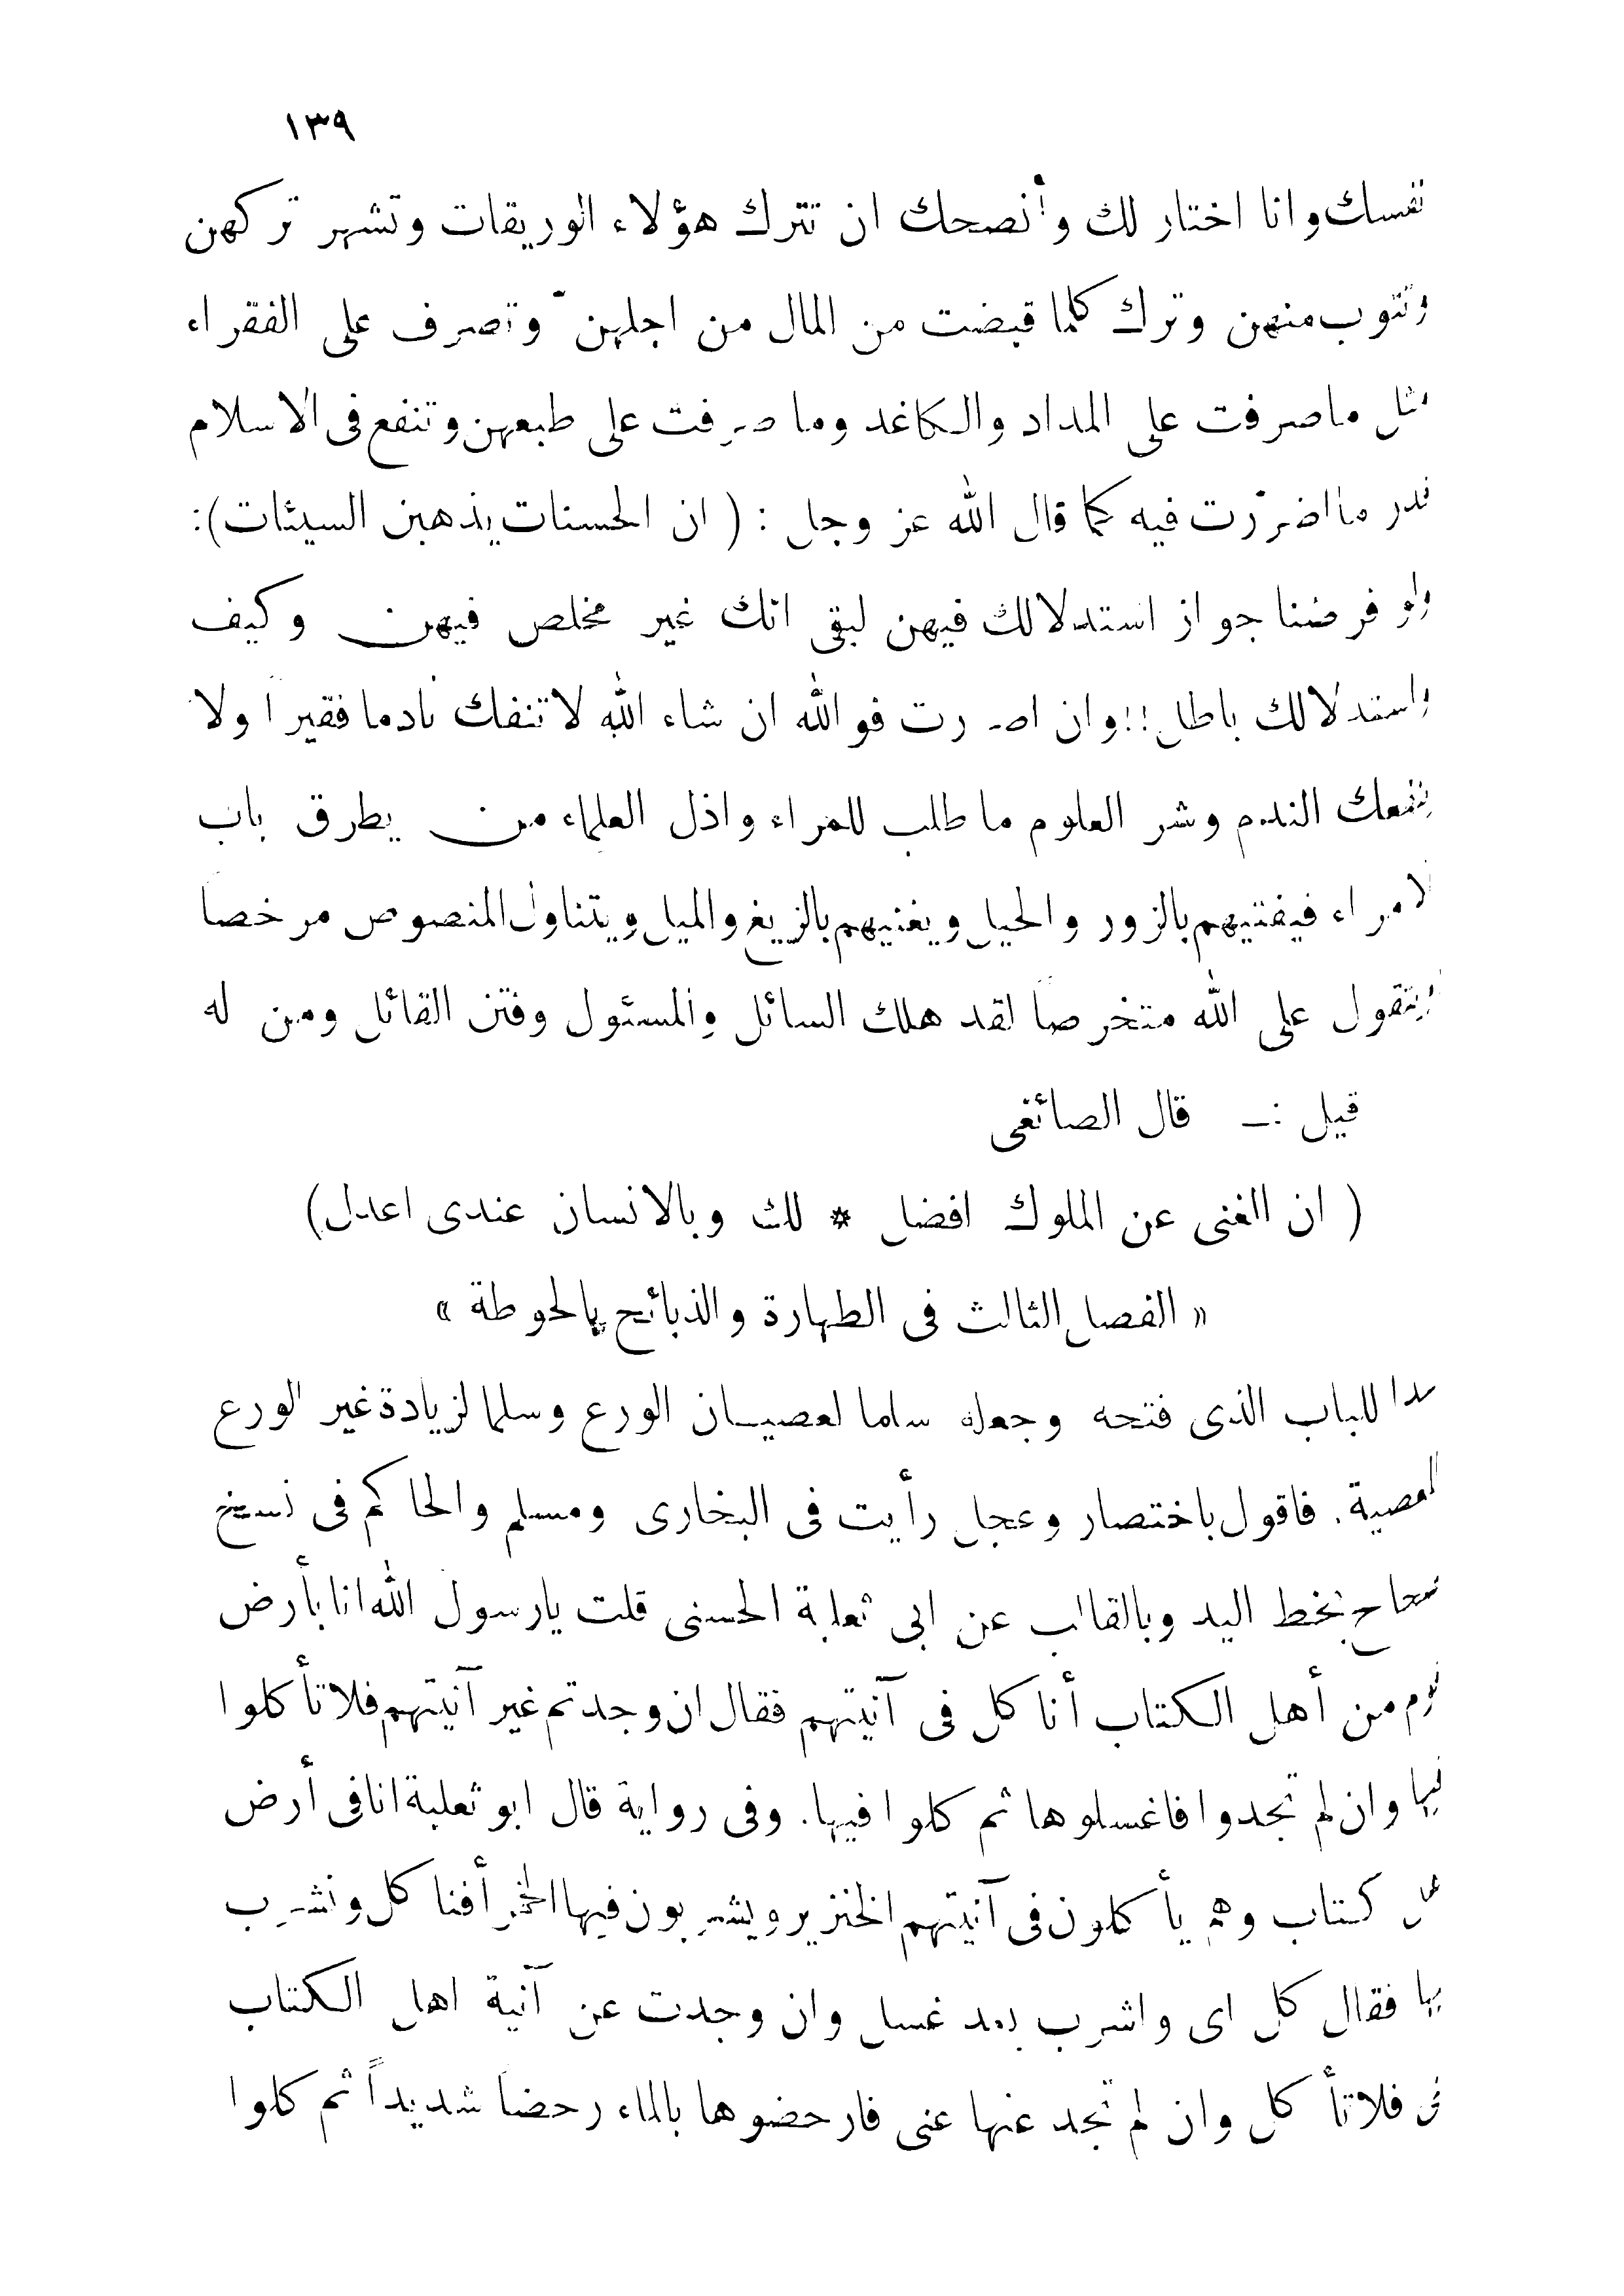 ١٣٩
نفسك وانا اختار لك وأنصحك ان تترك هؤلاء الوريقات وتشهر تركهن
وتتوب منهن وترك كلما قبضت من المال من اجلهن وتصرف على الفقراء
مثل ما صرفت على المداد والكاغد وما صرفت على طبعهن وتنفع فى الاسلام
قدر ما اضررت فيه كما قال الله عز وجل : ( ان الحسنات يذهبن السيئات):
ولو فرضنا جواز استدلالك فيهن لبقى انك غير مخلص فيهن وكيف
واستدلالك باطل!!وان اصررت فوالله ان شاء الله لا تنفك نادما فقيرا ولا
ينفعك الندم وشر العلوم ما طلب للمراء واذل العلماء من يطرق باب
الامراء فيفتيهم بالزور والحيل ويغنيهم بالزيغ والميل ويتناول المنصوص مرخصا
ويتقول على الله متخرصا لقد هلك السائل والمسئول وفتن القائل ومن له
قيل :— قال الصائغى
( ان الغنى عن الملوك افضل * لك وبالانسان عندى اعدل)
« الفصل الثالث فى الطهارة والذبائح بالحوطة »
سدا للباب الذى فتحه وجعله سلما لعصيان الورع وسلما لزيادة غير الورع
المعصية. فاقول باختصار وعجل رأيت فى البخارى ومسلم والحاكم فى نسخ
صحاح بخط اليد وبالقالب عن ابى ثعلبة الحسنى قلت يارسول الله انا بأرض
قوم من أهل الكتاب أنا كل فى آنيتهم فقال ان وجدتم غير آنيتهم فلا تأكلوا
فيها وان لم تجدوا فاغسلوها ثم كلوا فيها. وفى رواية قال ابو ثعلبة انا فى أرض
كتاب وهم يأكلون فى آنيتهم الخنزير ويشربون فيها الخمر أفنا كل ونشرب
فيها فقال كل اى واشرب بعد غسل وان وجدت عن آنية اهل الكتاب
غنى فلا تأكل وان لم تجد عنها غنى فارحضوها بالماء رحضا شديداً ثم كلوا